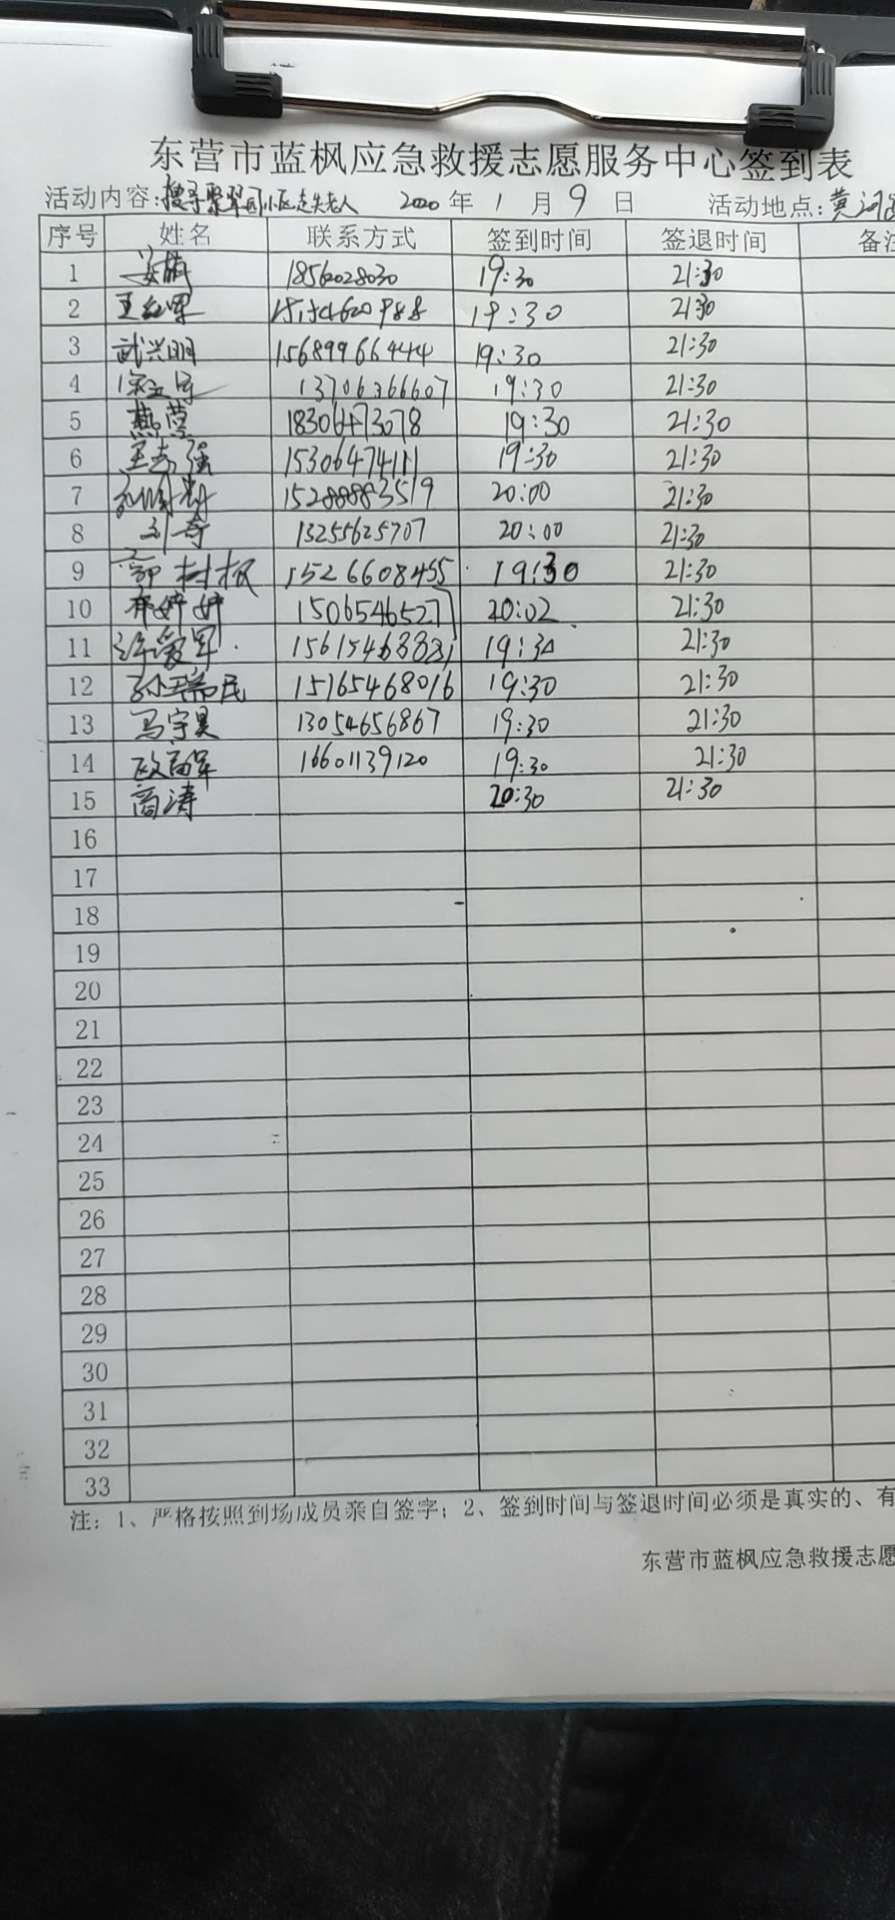 东营市蓝枫应急救援志愿服务中心签到表
活动内容:搜寻翠园小区走失老人 2020 年 1 月 9 日 活动地点:黄河
序号 姓名 联系方式 签到时间 签退时间 备注
1 18562028030 19:30 21:30
2 王红军 15154620988 19:30 21:30
3 武兴明 15689966444 19:30 21:30
4 13706366607 19:30 21:30
5 燕莹 18306473078 19:30 21:30
6 王志强 15306474111 19:30 21:30
7 15288883519 20:00 21:30
8 刘奇 13255625707 20:00 21:30
9 郭树枫 1526608455 19:30 21:30
10 婷婷 15065465277 20:02 21:30
11 许爱军 15615468881 19:30 21:30
12 孙瑞民 15165468016 19:30 21:30
13 马宇昊 13054656867 19:30 21:30
14 欧高军 16601139120 19:30 21:30
15 商涛 20:30 21:30
16
17
18
19
20
21
22
23
24
25
26
27
28
29
30
31
32
33
注: 1、严格按照到场成员亲自签字; 2、签到时间与签退时间必须是真实的、有
东营市蓝枫应急救援志愿